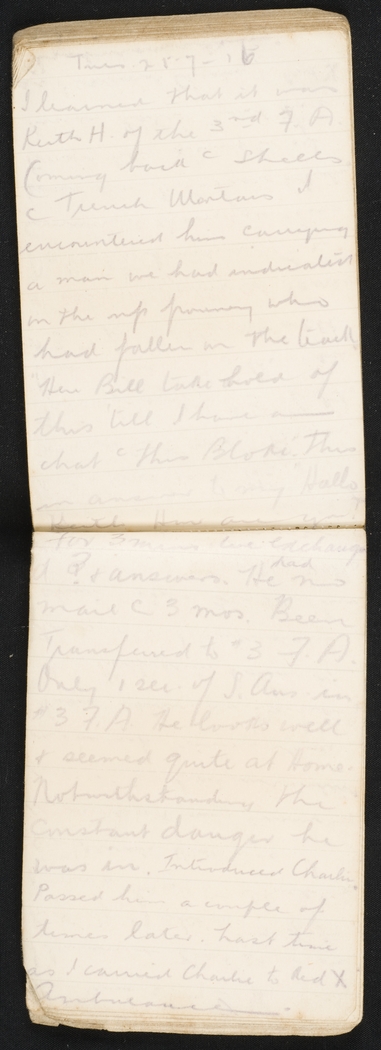 Tues. 25-7-16
I learned that it was
Keith H. of the 3rd F. A.
Coming back c Shells
c Trench Mortars I
encountered him carrying
a man we had
on the up journey who
had fallen on the track.
"Here Bill take hold of
this till I have a
chat c this Bloke." This
in answer to my Hallo
Keith How are you?
For 3 mins we exchanged
? & answers. He had no
mail c 3 mos. Been
Transferred to #3 F. A.
Only 1 sec. of S. Aus. in
#3 F. A. He looks well
& seemed quite at Home.
Notwithstanding the
constant danger he
was in. Introduced Charlie.
Passed him a couple of
times later. Last time
as I carried Charlie to Aid X
Ambulance.